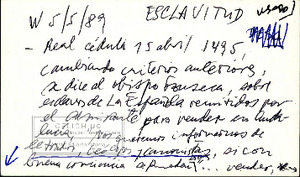 W 5/5/89 ESCLAVITUD
- Real cédula 15 abril 1495,
cambiando criterios anteriores,
se dice al obispo Fonseca, sobre
esclavos de La Española remitidos por
el almirante para vender en Anda
lucía. Nos queremos informarnos de
letrados, teólogos y canonistas, si con
buena conciencia se pueden vender,